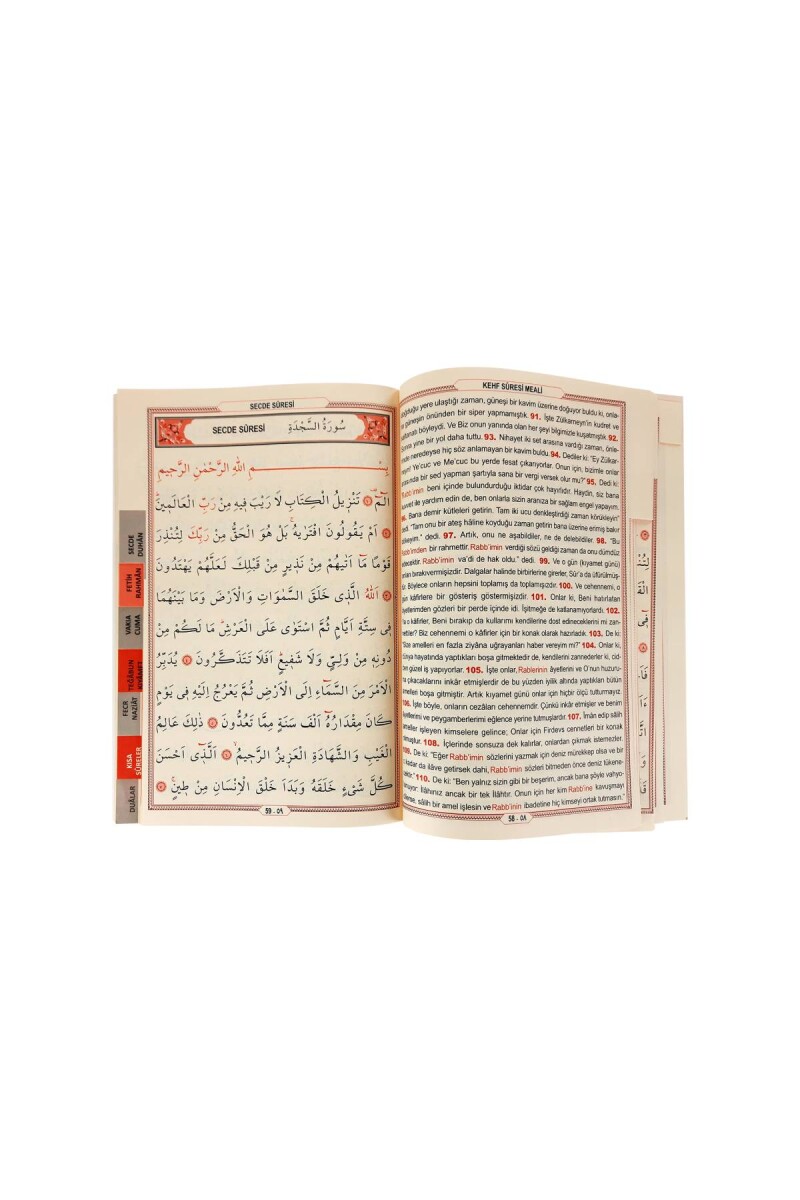 KEHF SÛRESİ MEALİ
doğduğu yere ulaştığı zaman, güneşi bir kavim üzerine doğuyor buldu ki, onla-
güneşin önünden bir siper yapmamıştık. 91. İşte Zülkarneyn'in kudret ve
saltanatı böyleydi. Ve Biz onun yanında olan her şeyi bilgimizle kuşatmıştık. 92.
yine bir yol daha tuttu. 93. Nihayet iki set arasına vardığı zaman, önle-
neredeyse hiç söz anlamayan bir kavim buldu. 94. Dediler ki: "Ey Zülkar-
Ye'cuc ve Me'cuc bu yerde fesat çıkarıyorlar. Onun için, bizimle onlar
arasında bir sed yapman şartıyla sana bir vergi versek olur mu?" 95. Dedi ki:
Rabb'imin beni içinde bulundurduğu iktidar çok hayırlıdır. Haydin, siz bana
kuvvet ile yardım edin de, ben onlarla sizin aranıza bir sağlam engel yapayım.
96. Bana demir kütleleri getirin. Tam iki ucu denkleştirdiği zaman körükleyin"
dedi. "Tam onu bir ateş hâline koyduğu zaman getirin bana üzerine erimiş bakır
dökeyim." dedi. 97. Artık, onu ne aşabildiler, ne de delebildiler. 98. "Bu
Rabb'imden bir rahmettir. Rabb'imin verdiği sözü geldiği zaman da onu dümdüz
edecektir. Rabb'imin va'di de hak oldu." dedi. 99. Ve o gün (kıyamet günü)
onları bırakıvermişizdir. Dalgalar halinde birbirlerine girerler, Sûr'a da üfürülmüş-
tür. Böylece onların hepsini toplamış da toplamışızdır. 100. Ve cehennemi, o
gün kâfirlere bir gösteriş göstermişizdir. 101. Onlar ki, Beni hatırlatan
âyetlerimden gözleri bir perde içinde idi. İşitmeğe de katlanamıyorlardı. 102.
Ya o kâfirler, Beni bırakıp da kullarımı kendilerine dost edineceklerini mi zan-
nettiler? Biz cehennemi o kâfirler için bir konak olarak hazırladık. 103. De ki:
"Size amelleri en fazla ziyâna uğrayanları haber vereyim mi?" 104. Onlar ki,
dünya hayatında yaptıkları boşa gitmektedir de, kendilerini zannederler ki, cid-
den güzel iş yapıyorlar. 105. İşte onlar, Rablerinin âyetlerini ve O'nun huzuru-
na çıkacaklarını inkâr etmişlerdir de bu yüzden iyilik adına yaptıkları bütün
amelleri boşa gitmiştir. Artık kıyamet günü onlar için hiçbir ölçü tutturmayız.
106. İşte böyle, onların cezâları cehennemdir. Çünkü inkâr etmişler ve benim
âyetlerimi ve peygamberlerimi eğlence yerine tutmuşlardır. 107. İmân edip sâlih
ameller işleyen kimselere gelince; Onlar için Firdevs cennetleri bir konak
olmuştur. 108. İçlerinde sonsuza dek kalırlar, onlardan çıkmak istemezler.
109. De ki: "Eğer Rabb'imin sözlerini yazmak için deniz mürekkep olsa ve bir
o kadar da ilâve getirsek dahi, Rabb'imin sözleri bitmeden önce deniz tükene-
cektir." 110. De ki: "Ben yalnız sizin gibi bir beşerim, ancak bana şöyle vahyo-
lunuyor: İlâhınız ancak bir tek İlâhtır. Onun için her kim Rabb'ine kavuşmayı
ederse, sâlih bir amel işlesin ve Rabb'inin ibadetine hiç kimseyi ortak tutmasın."
58 - ٥٨
SECDE SÛRESİ
SECDE SÛRESİ سُورَةُ السَّجْدَةِ
بِسْمِ اللّٰهِ الرَّحْمٰنِ الرَّحِيمِ
الٓمٓ ۞ تَنْزِيلُ الْكِتَابِ لَا رَيْبَ فِيهِ مِنْ رَبِّ الْعَالَمِينَ
۞ اَمْ يَقُولُونَ افْتَرٰيهُ بَلْ هُوَ الْحَقُّ مِنْ رَبِّكَ لِتُنْذِرَ
قَوْمًا مَٓا اَتٰيهُمْ مِنْ نَذِيرٍ مِنْ قَبْلِكَ لَعَلَّهُمْ يَهْتَدُونَ
۞ اَللّٰهُ الَّذِي خَلَقَ السَّمٰوَاتِ وَالْاَرْضَ وَمَا بَيْنَهُمَا
فِي سِتَّةِ اَيَّامٍ ثُمَّ اسْتَوٰى عَلَى الْعَرْشِ مَا لَكُمْ مِنْ
دُونِهِ مِنْ وَلِيٍّ وَلَا شَفِيعٍ اَفَلَا تَتَذَكَّرُونَ ۞ يُدَبِّرُ
الْاَمْرَ مِنَ السَّمَٓاءِ اِلَى الْاَرْضِ ثُمَّ يَعْرُجُ اِلَيْهِ فِي يَوْمٍ
كَانَ مِقْدَارُهُٓ اَلْفَ سَنَةٍ مِمَّا تَعُدُّونَ ۞ ذٰلِكَ عَالِمُ
الْغَيْبِ وَالشَّهَادَةِ الْعَزِيزُ الرَّحِيمُ ۞ اَلَّذِٓي اَحْسَنَ
كُلَّ شَيْءٍ خَلَقَهُ وَبَدَاَ خَلْقَ الْاِنْسَانِ مِنْ طِينٍ ۞
59 - ٥٩
SECDE
DUHÂN
FETİH
RAHMÂN
VAKIA
CUMA
TEĞÂBUN
FECR
NAZİÂT
KISA
SÛRELER
DUÂLAR